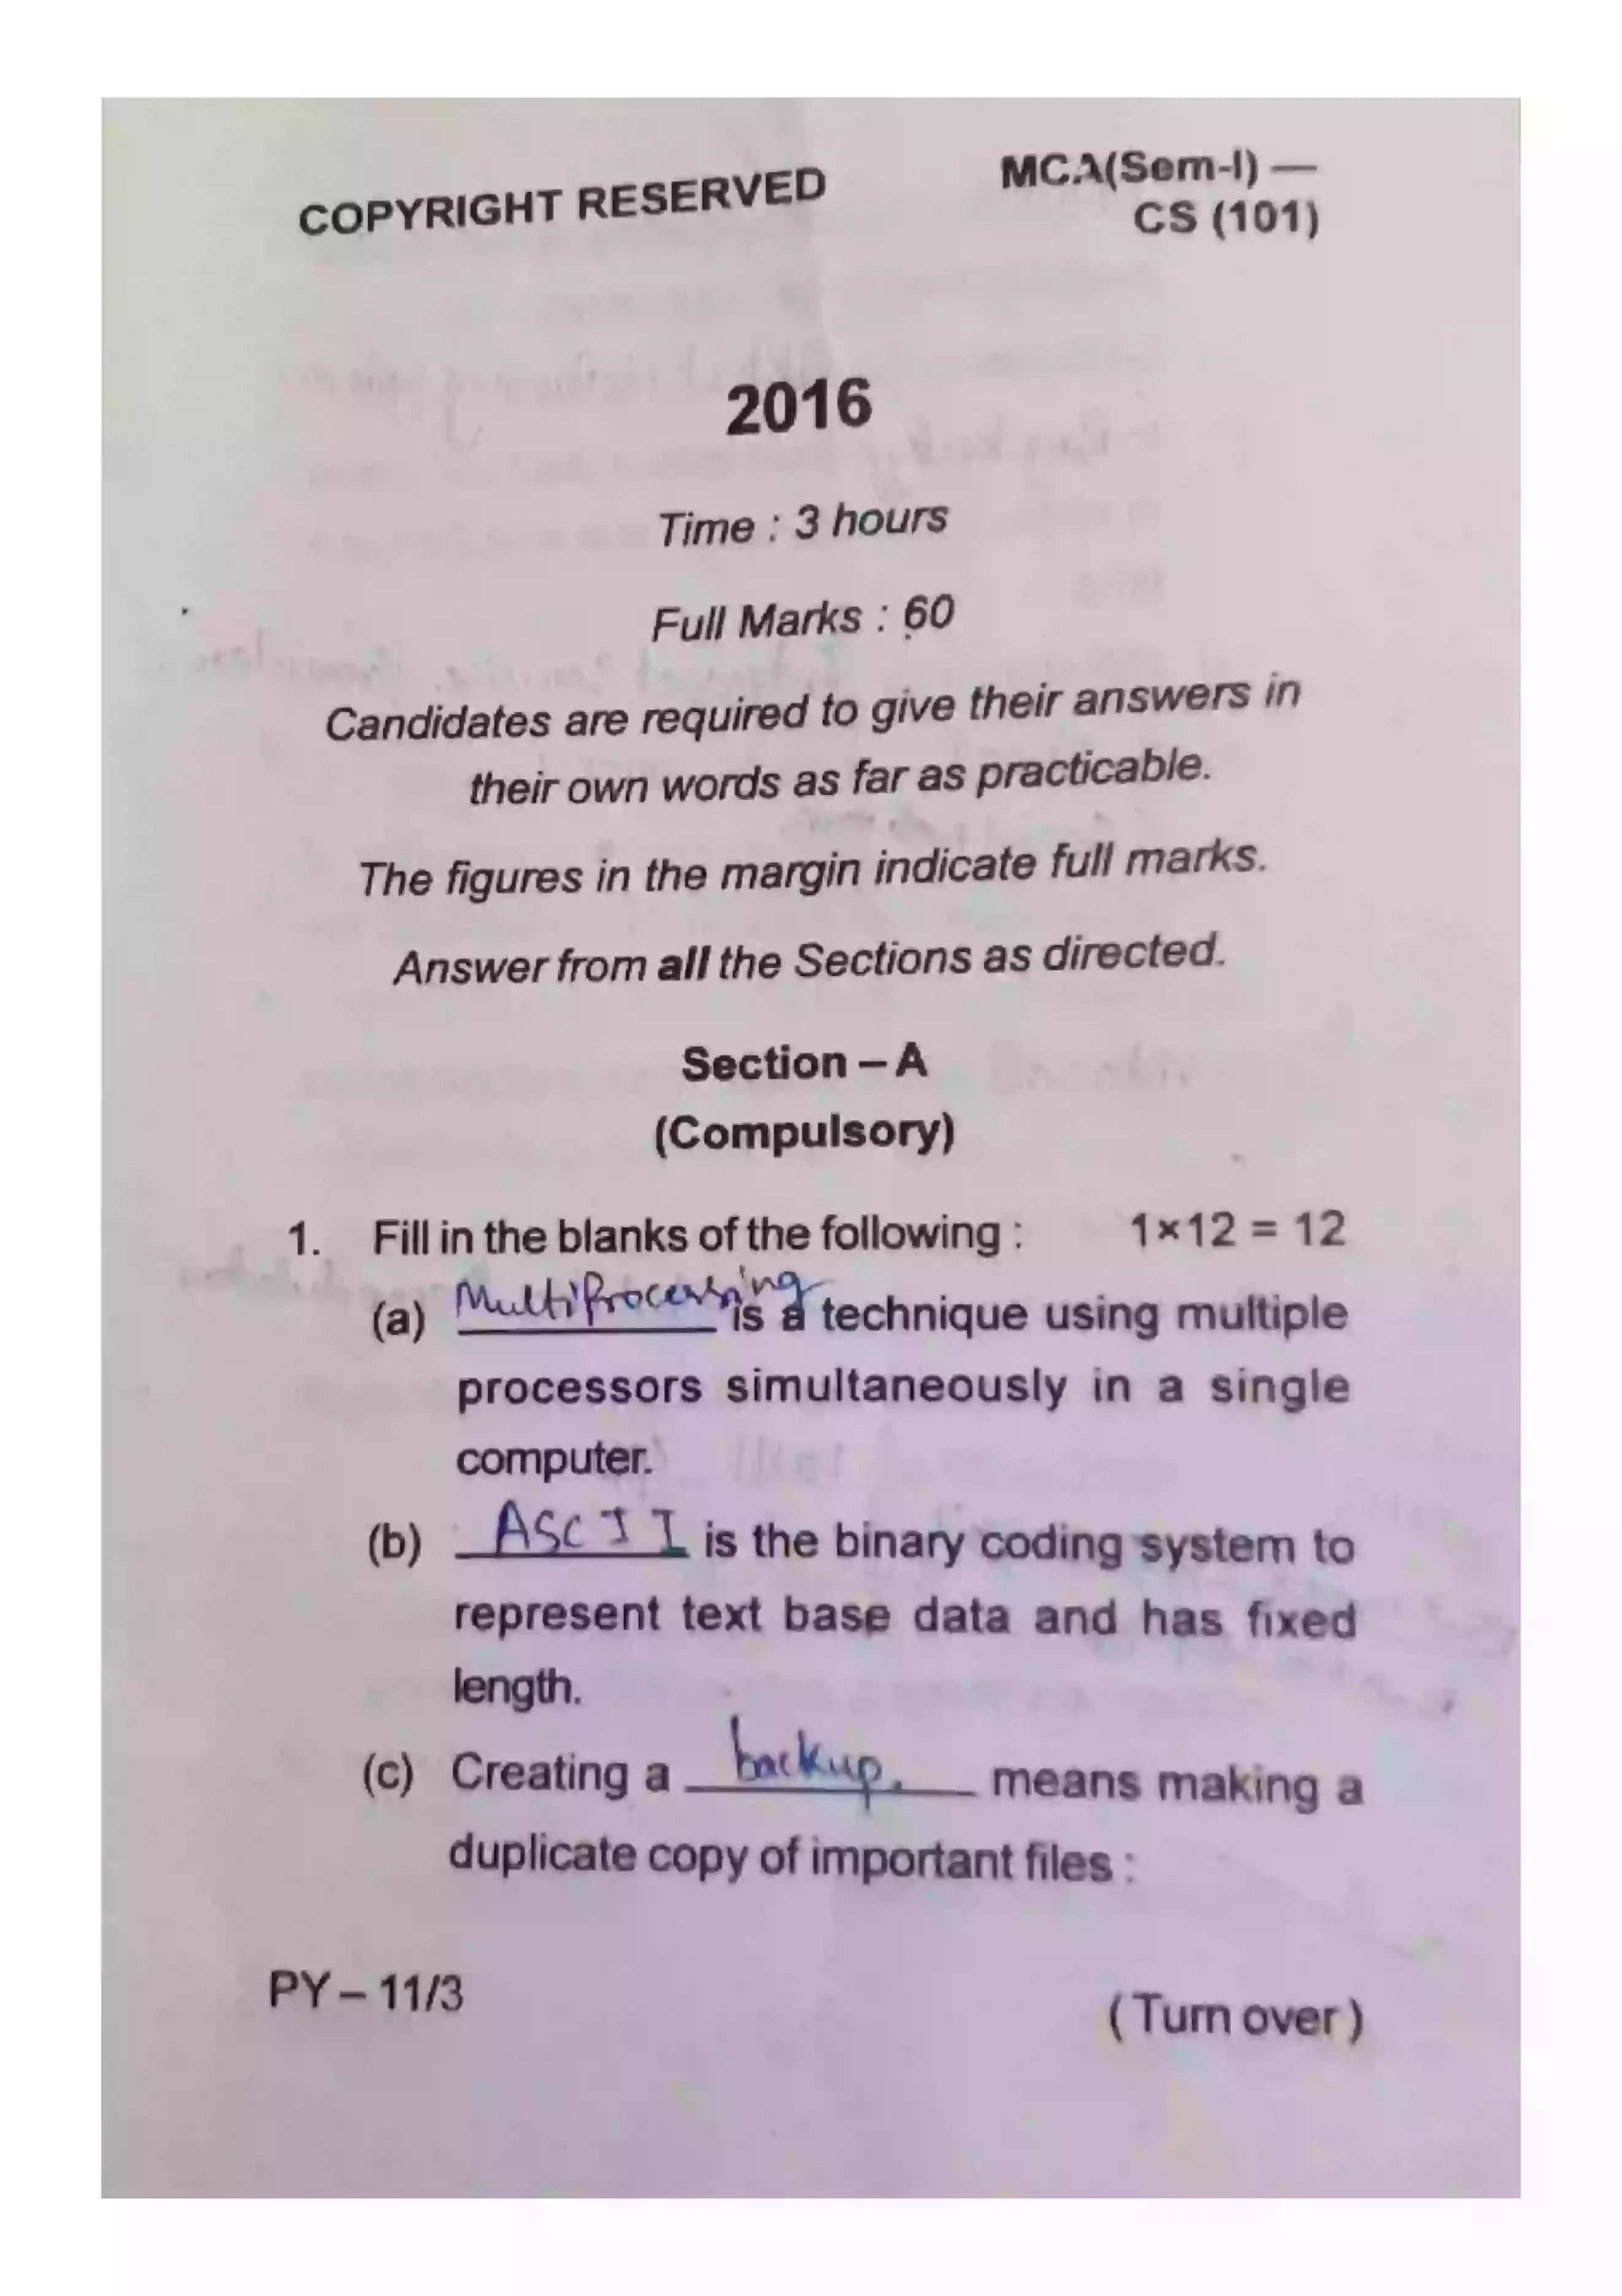 COPYRIGHT RESERVED
MCA(Sem-I) —
CS (101)
2016
Time : 3 hours
Full Marks : 60
Candidates are required to give their answers in
their own words as far as practicable.
The figures in the margin indicate full marks.
Answer from all the Sections as directed.
Section – A
(Compulsory)
1. Fill in the blanks of the following : 1×12 = 12
(a) MultiProcessing is a technique using multiple
processors simultaneously in a single
computer.
(b) ASCII is the binary coding system to
represent text base data and has fixed
length.
(c) Creating a backup. means making a
duplicate copy of important files :
PY – 11/3
( Turn over )